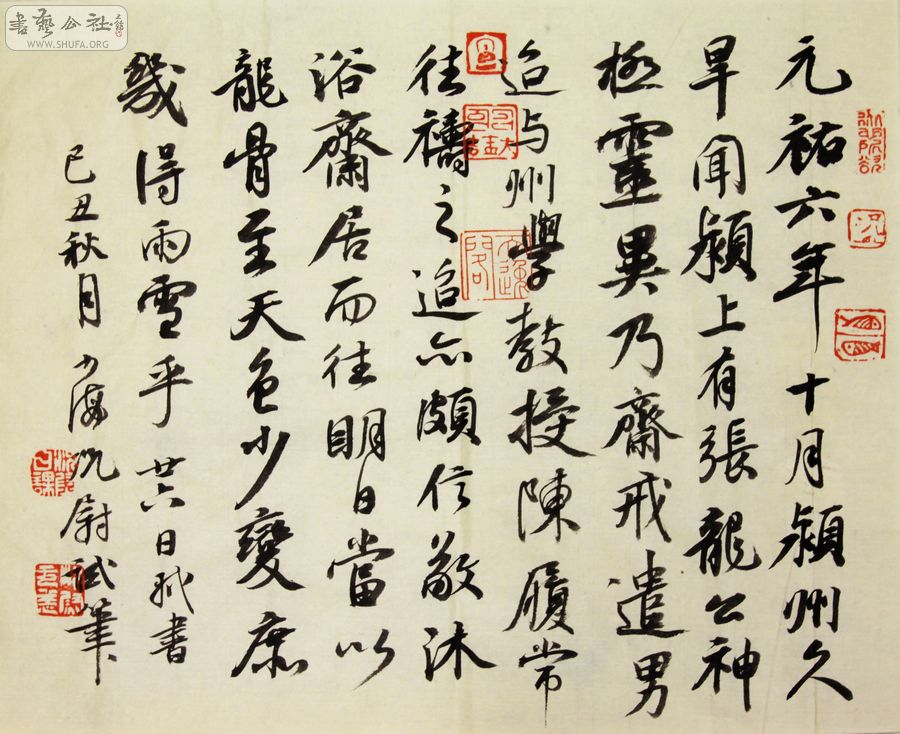 元祐六年十月潁州久
旱聞潁上有張龍公神
極靈異乃齋戒遣男
迨与州學教授陳履常
往禱之迨亦頗信敬沐
浴齋居而往明日當以
龍骨至天色少變庶
幾得雨雪乎廿六日軾書
己丑秋月少海沈尉試筆
書藝公社
WWW.SHUFA.ORG